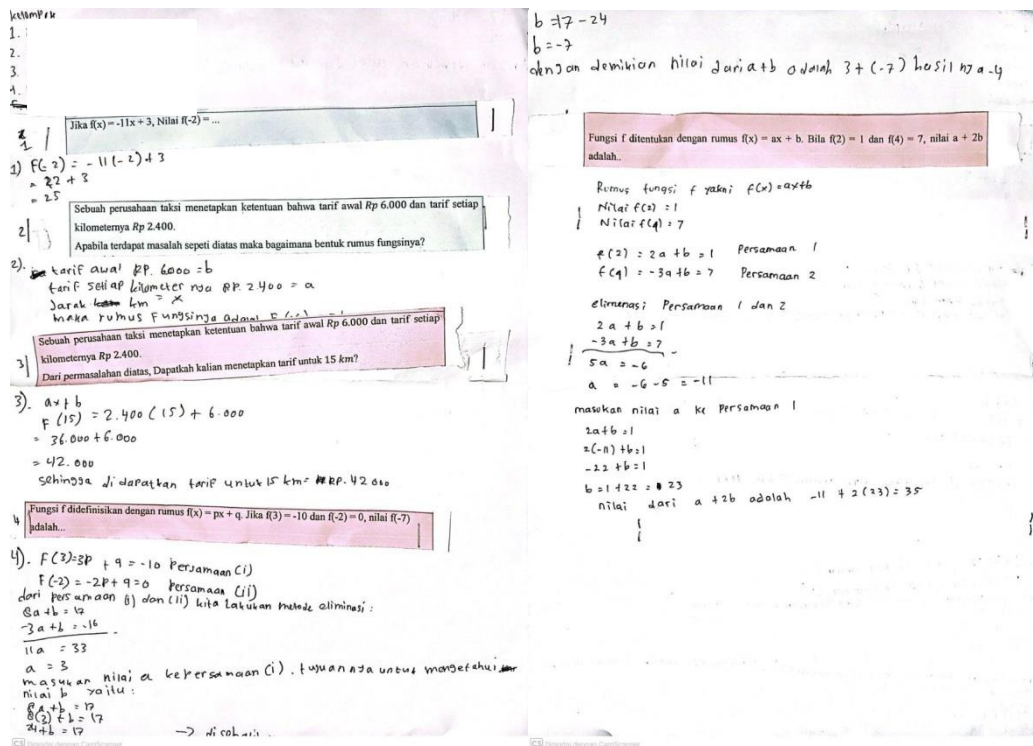 kelompok
1.
2.
3.
4.
1
Jika f(x) = -11x + 3, Nilai f(-2) = ...
1) F(-2) = -11(-2)+3
= 22 + 3
= 25
2
Sebuah perusahaan taksi menetapkan ketentuan bahwa tarif awal Rp 6.000 dan tarif setiap
kilometernya Rp 2.400.
Apabila terdapat masalah sepeti diatas maka bagaimana bentuk rumus fungsinya?
2). tarif awal RP. 6.000 = b
tarif setiap kilometer nya RP. 2.400 = a
Jarak km = x
maka rumus Fungsinya
3
Sebuah perusahaan taksi menetapkan ketentuan bahwa tarif awal Rp 6.000 dan tarif setiap
kilometernya Rp 2.400.
Dari permasalahan diatas, Dapatkah kalian menetapkan tarif untuk 15 km?
3). ax+b
F (15) = 2.400 (15) + 6.000
= 36.000 + 6.000
= 42.000
sehingga di dapatkan tarif untuk 15 km = RP. 42 000
4
Fungsi f didefinisikan dengan rumus f(x) = px + q. Jika f(3) = -10 dan f(-2) = 0, nilai f(-7)
adalah...
4). F(3)=3P + q = -10 Persamaan (i)
F(-2) = -2P + q = 0 Persamaan (ii)
dari persamaan (i) dan (ii) kita lakukan metode eliminasi :
8a + b = 17
-3a + b = -16
11a = 33
a = 3
masukan nilai a kepersamaan (i). tujuannya untuk mengetahui
nilai b yaitu :
8a + b = 17
8(3) + b = 17
24+b = 17
b = 17 - 24
b = -7
dengan demikian nilai dari a+b adalah 3 + (-7) hasilnya -4
Fungsi f ditentukan dengan rumus f(x) = ax + b. Bila f(2) = 1 dan f(4) = 7, nilai a + 2b
adalah..
Rumus fungsi f yakni f(x) = ax+b
Nilai f(2) = 1
Nilai f(4) = 7
f(2) = 2a + b = 1 Persamaan 1
f(4) = -3a + b = 7 Persamaan 2
eliminasi Persamaan 1 dan 2
2a + b = 1
-3a + b = 7
5a = -6
a = -6 - 5 = -11
masukan nilai a ke Persamaan 1
2a+b = 1
2(-11) + b = 1
-22 + b = 1
b = 1 + 22 = 23
nilai dari a + 2b adalah -11 + 2(23) = 35
CS Dipindai dengan CamScanner
CS Dipindai dengan CamScanner